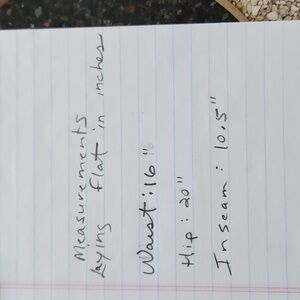 Measurements
Laying flat in inches
Waist: 16"
Hip: 20"
Inseam: 10.5"